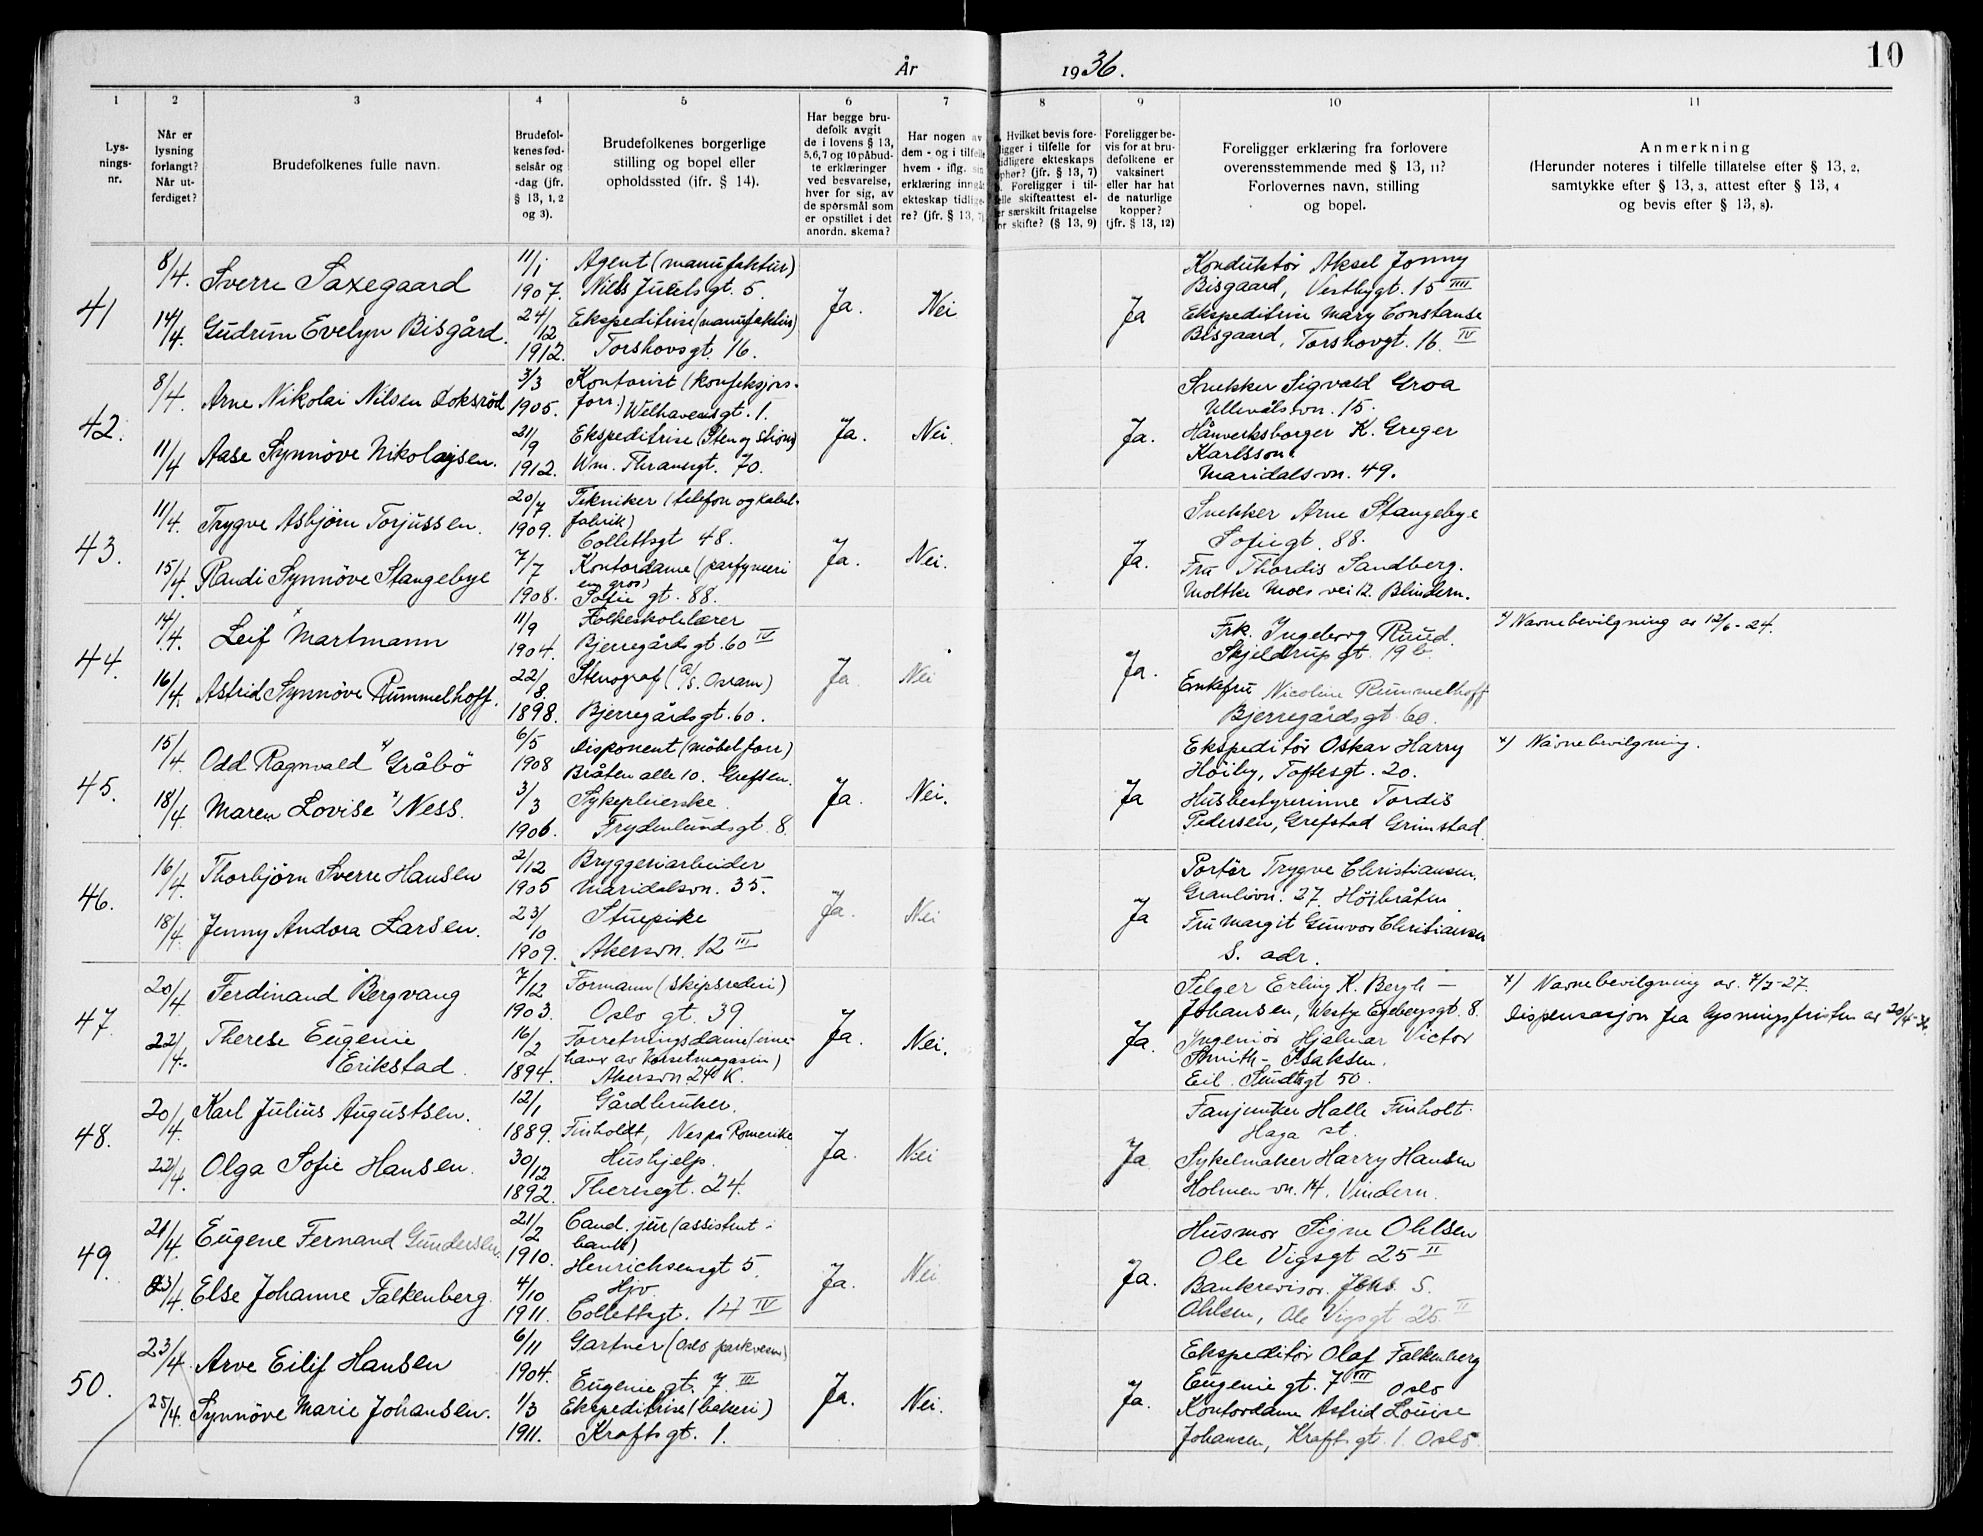 10
År 1936.
1 2 3 4 5 6 7 8 9 10 11
Lys-
nings-
nr.
Når er
lysning
forlangt?
Når ut-
ferdiget?
Brudefolkenes fulle navn.
Brudefol-
kenes fød-
selsår og
-dag (jfr.
§ 13, 1, 2
og 3).
Brudefolkenes borgerlige
stilling og bopel eller
opholdssted (ifr. § 14).
Har begge bru-
defolk avgit
de i lovens § 13,
5, 6, 7 og 10 påbud-
te erklæringer
ved besvarelse,
hver for sig, av
de spørsmål som
er opstillet i det
anordn. skema?
Har nogen av
dem - og i tilfelle
hvem - iflg. sin
erklæring inngått
ekteskap tidlige-
re? (jfr. § 13, 7)
Hvilket bevis fore-
ligger i tilfelle for
tidligere ekteskaps
ophør? (jfr. § 13, 7)
Foreligger i til-
felle skifteattest el-
ler særskilt fritagelse
for skifte? (§ 13, 9)
Foreligger be-
vis for at bru-
defolkene er
vaksinert
eller har hat
de naturlige
kopper?
(jfr. § 13, 12)
Foreligger erklæring fra forlovere
overensstemmende med § 13, 11?
Forlovernes navn, stilling
og bopel.
Anmerkning
(Herunder noteres i tilfelle tillatelse efter § 13, 2,
samtykke efter § 13, 3, attest efter § 13, 4
og bevis efter § 13, 8).
41
8/4. Sverre Saxegaard
11/1 1907.
Agent (manufaktur)
Nils Juelsgt. 5.
14/4. Gudrun Evelyn Bisgård.
24/12 1912.
Ekspeditrise (manufaktur)
Torshovsgt. 16.
Ja.
Nei
Ja
Konduktør Aksel Jonny
Bisgaard, Vestbygt. 15 IIII
Ekspeditrise Mary Constanse
Bisgaard, Torshovgt. 16. IV
42.
8/4. Arne Nikolai Nilsen Doksrød
3/3 1905.
Kontorist (konfeksjons-
forr.) Welhavensgt. 1.
11/4 Aase Synnøve Nikolaysen.
21/9 1912.
Ekspeditrise (Sten og Strøm)
Wm. Thranesgt. 70.
Ja.
Nei.
Ja.
Snekker Sigvald Groa
Ullevålsvn. 15.
Håndverksborger K. Greger
Karlsson.
Maridalsvn. 49.
43.
11/4. Trygve Asbjørn Torjussen.
20/7 1909.
Tekniker (telefon og kabel-
fabrik)
Collettsgt 48.
15/4. Randi Synnöve Stangebye
7/7 1908.
Kontordame (parfymeri
en gros)
Sofie gt. 88.
Ja.
Nei.
Ja.
Snekker Arne Stangebye
Sofiegt. 88.
Fru Thordis Sandberg.
Moltke Moes vei 12. Blindern.
44.
14/4. Leif x Martmann
11/9 1904.
Folkeskolelærer
Bjerregårds gt. 60 IV
16/4. Astrid Synnöve Rummelhoff.
22/8. 1898.
Stenograf (a/s. Osram)
Bjerregårdsgt. 60.
Ja
Nei
Ja.
Frk. Ingeborg Ruud.
Skjeldrups gt. 19 b.
Enkefru Nicoline Rummelhoff
Bjerregårdsgt. 60.
x) Navnebevilgning av 12/6-24.
45.
15/4. Odd Ragnvald x) Gråbö
6/5 1908
Disponent (möbel forr)
Bråten alle 10. Grefsen.
18/4 Maren Lovise x) Ness.
3/3 1906.
Sykepleierske.
Frydenlundsgt. 8.
Ja.
Nei.
Ja
Ekspeditör Oskar Harry
Höiby, Toftesgt. 20.
Husbestyrerinne Tordis
Pedersen, Grefstad Grimstad.
x) Navnebevilgning.
46.
16/4. Thorbjörn Sverre Hansen
2/12 1905
Bryggeriarbeider
Maridalsvn. 35.
18/4. Jenny Andora Larsen.
23/10 1909.
Stuepike
Akersvn. 12 III
Ja.
Nei
Ja
Portör Trygve Christiansen.
Granlivn. 27. Höibråten.
Fru Margit Gunvor Christiansen
S. adr.
47.
20/4. Ferdinand x Bergvang
7/12 1903.
Formann (skipsrederi)
Oslo gt. 39
22/4. Therese Eugenie
Erikstad.
16/2 1894.
Forretningsdame (inne-
haver av Korsetmagasin)
Akersvn. 24 K.
Ja.
Nei.
Ja.
Selger Erling K. Bergh -
Johansen, Westye Egebergsgt. 8.
Ingeniör Hjalmar Victor
Smith-Isaksen.
Eil. Sundtsgt 50.
x) Navnebevilgning av. 7/3-27.
Dispensasjon fra lysningsfristen av 20/4-36.
48.
20/4. Karl Julius Augustsen.
12/1 1889.
Gårdbruker.
Finholdt, Nes på Romerike.
22/4. Olga Sofie Hansen.
30/12 1892.
Hushjelp.
Theresegt. 24.
Ja.
Nei
Ja
Fanjunker Halle Finholt.
Haga st.
Sykelmaker Harry Hansen
Holmen vn. 14. Vindern.
49.
21/4. Eugene Fernand Gundersen.
21/2 1910.
Cand. jur (assistent -
bank)
Henrichsensgt 5.
23/4. Else Johanne Falkenberg.
4/10 1911.
Hjv.
Collettsgt. 14 IV
Ja.
Nei
Ja.
Husmor Signe Ohlsen
Ole Vigsgt 25 II
Bankrevisor. Johs. S.
Ohlsen, Ole Vigsgt 25 II
50.
23/4. Arve Eilif Hansen
6/11 1904.
Gartner (Oslo parkvesen)
Eugenie gt. 7. III
25/4. Synnöve Marie Johansen.
1/3 1911.
Ekspeditrise (bakeri)
Krafts gt. 1.
Ja.
Nei.
Ja.
Ekspeditör Olaf Falkenberg
Eugenie gt. 7 III Oslo
Kontordame Astrid Louise
Johansen, Krafts gt. 1. Oslo.